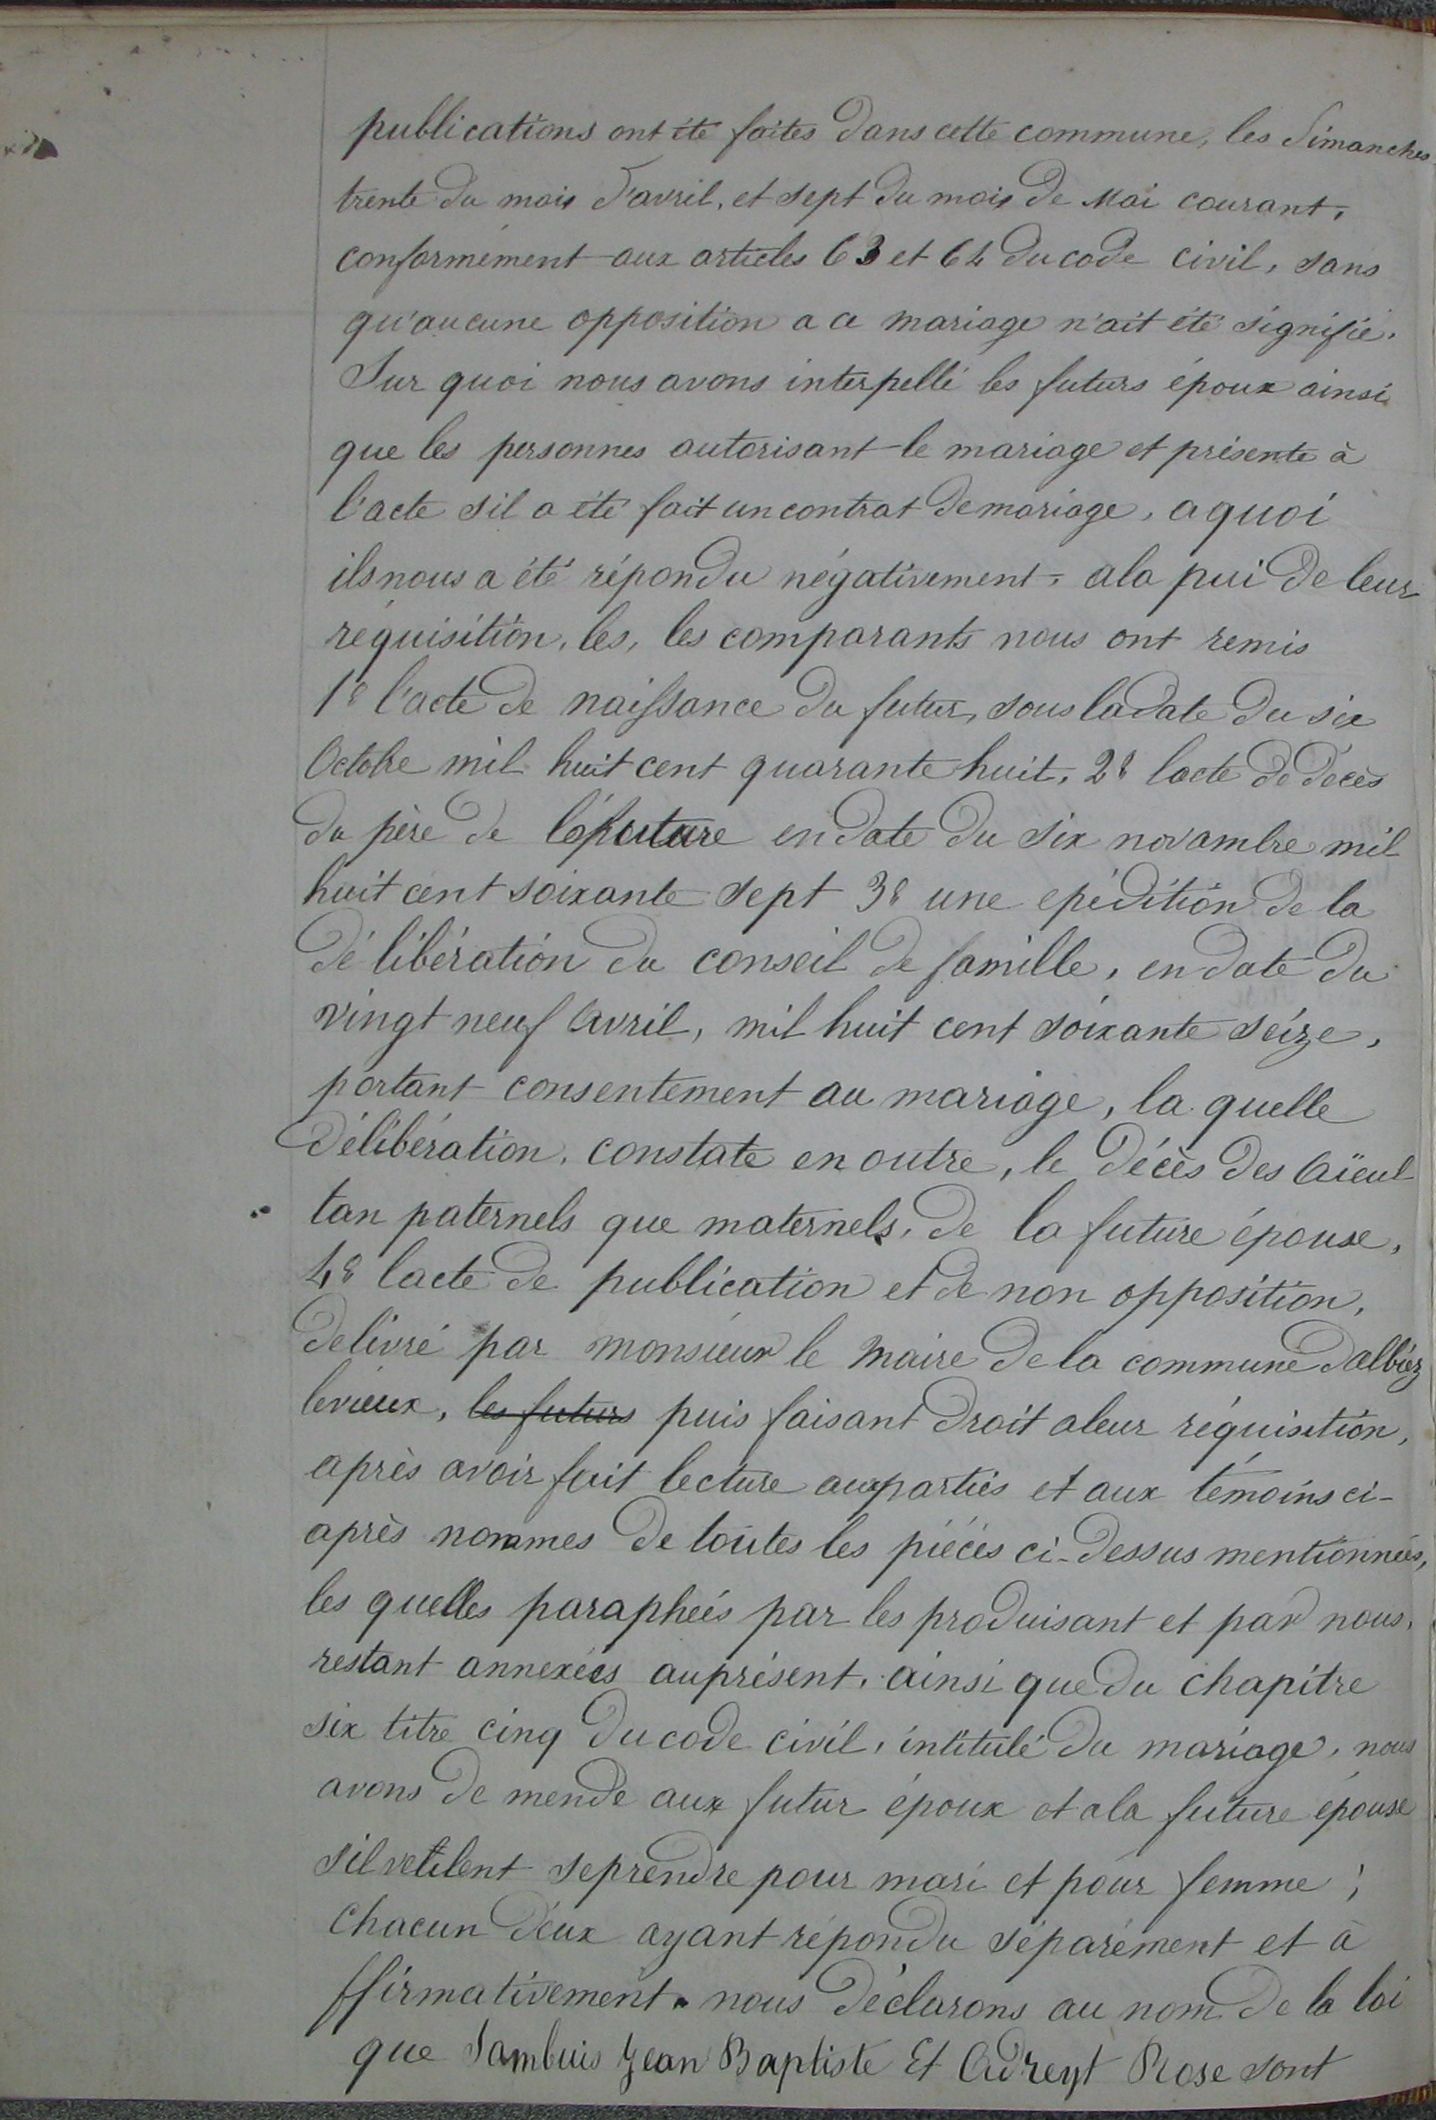 publications ont été faites dans cette commune, les dimanches
trente du mois d'avril, et sept du mois de Mai courant,
conformément aux articles 63 et 64 du code civil, sans
qu'aucune opposition a ce mariage n'ait été signifié.
Sur quoi nous avons interpellé les futurs époux ainsi
que les personnes autorisant le mariage et présente à
l'acte s'il a été fait un contrat de mariage, a quoi
ils nous a été répondu négativement, a la pui de leur
réquisition, les, les comparants nous ont remis
1º l'acte de naissance du futur, sous la date du six
Octobre mil huit cent quarante huit, 2º lacte de décès
du père de la future en date du six novambre mil
huit cent soixante sept 3º une epédition de la
délibération du conseil de famille, en date du
vingt neuf Avril, mil huit cent soixante seize,
portant consentement au mariage, la quelle
délibération, constate en outre, le décès des Aïeul
tan paternels que maternels, de la future épouse,
4º lacte de publication et de non opposition,
delivré par monsieur le maire de la commune d'albiez
levieux, les futurs puis faisant droit a leur réquisition,
après avoir fait lecture aux parties et aux témoins ci-
après nommes de toutes les piéces ci-dessus mentionnées,
les quelles paraphées par les produisant et par nous,
restant annexées au présent, ainsi que du chapitre
six titre cinq du code civil, intitulé du mariage, nous
avons de mende aux futur époux et a la future épouse
s'il veulent se prendre pour mari et pour femme ;
chacun d'eux ayant répondu séparément et à
ffirmativement. nous déclarons au nom de la loi
que Sambuis Jean Baptiste Et Adreyt Rose sont